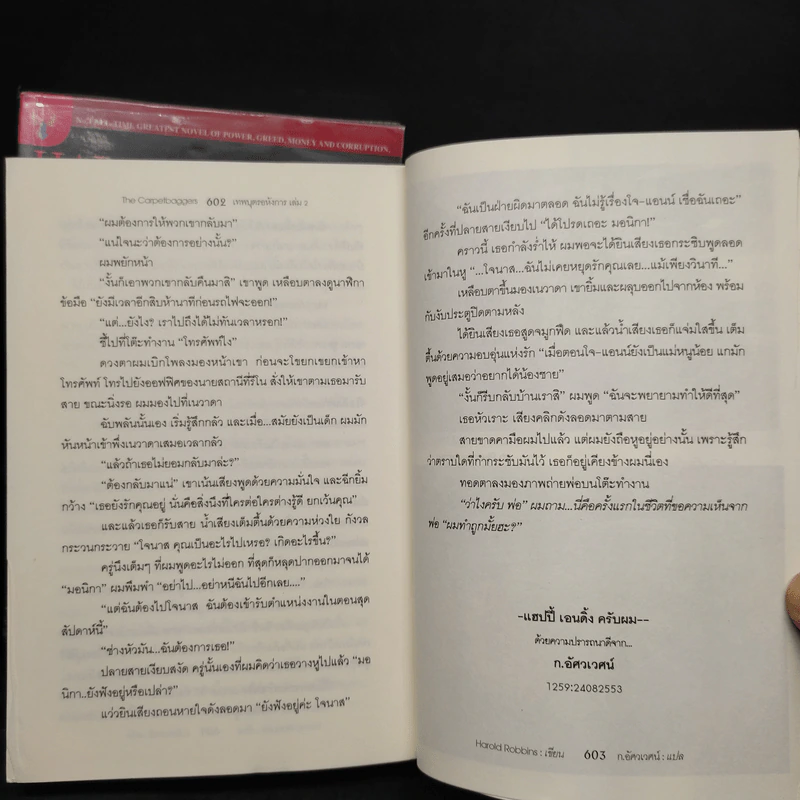 GREATEST NOVEL OF POWER, GREED, MONEY AND CORRUPTION,
The Carpetbaggers 602 เทพบุตรอหังการ เล่ม ๖
“ผมต้องการให้พวกเขากลับมา”
“แน่ใจนะว่าต้องการอย่างนั้น?”
ผมพยักหน้า
“งั้นก็เอาพวกเขากลับคืนมาสิ” เขาพูด เหลือบตาลงดูนาฬิกา
ข้อมือ “ยังมีเวลาอีกสิบห้านาทีก่อนรถไฟจะออก!”
“แต่...ยังไง? เราไปถึงได้ไม่ทันเวลาหรอก!”
ชี้ไปที่โต๊ะทำงาน “โทรศัพท์ไง”
ดวงตาผมเบิกโพลงมองหน้าเขา ก่อนจะโขยกเขยกเข้าหา
โทรศัพท์ โทรไปยังออฟฟิศของนายสถานีที่รีโน สั่งให้เขาตามเธอมารับ
สาย ขณะนิ่งรอ ผมมองไปที่เนวาดา
ฉับพลันนั้นเอง เริ่มรู้สึกกลัว และเมื่อ...สมัยยังเป็นเด็ก ผมมัก
หันหน้าเข้าพึ่งเนวาดาเสมอเวลากลัว
“แล้วถ้าเธอไม่ยอมกลับมาล่ะ?”
“ต้องกลับมาแน่” เขาเน้นเสียงพูดด้วยความมั่นใจ และฉีกยิ้ม
กว้าง “เธอยังรักคุณอยู่ นั่นคือสิ่งนึงที่ใครต่อใครต่างรู้ดี ยกเว้นคุณ”
และแล้วเธอก็รับสาย น้ำเสียงเต็มตื้นด้วยความห่วงใย กังวล
กระวนกระวาย “โจนาส คุณเป็นอะไรไปเหรอ? เกิดอะไรขึ้น?”
ครู่นึงเต็มๆ ที่ผมพูดอะไรไม่ออก ที่สุดก็หลุดปากออกมาจนได้
“มอนิกา” ผมพึมพำ “อย่าไป...อย่าหนีฉันไปอีกเลย....”
“แต่ฉันต้องไปโจนาส ฉันต้องเข้ารับตำแหน่งงานในตอนสุด
สัปดาห์นี้”
“ช่างหัวมัน...ฉันต้องการเธอ!”
ปลายสายเงียบสงัด ครู่นั้นเองที่ผมคิดว่าเธอวางหูไปแล้ว “มอ
นิกา..ยังฟังอยู่หรือเปล่า?”
แว่วยินเสียงถอนหายใจดังลอดมา “ยังฟังอยู่ค่ะ โจนาส”
“ฉันเป็นฝ่ายผิดมาตลอด ฉันไม่รู้เรื่องโจ-แอนน์ เชื่อฉันเถอะ”
อีกครั้งที่ปลายสายเงียบไป “ได้โปรดเถอะ มอนิกา!”
คราวนี้ เธอกำลังร่ำไห้ ผมพอจะได้ยินเสียงเธอกระซิบพูดลอด
เข้ามาในหู “...โจนาส...ฉันไม่เคยหยุดรักคุณเลย...แม้เพียงวินาที...”
เหลือบตาขึ้นมองเนวาดา เขายิ้มและผลุบออกไปจากห้อง พร้อม
กับงับประตูปิดตามหลัง
ได้ยินเสียงเธอสูดจมูกฟืด และแล้วน้ำเสียงเธอก็แจ่มใสขึ้น เต็ม
ตื้นด้วยความอบอุ่นแห่งรัก “เมื่อตอนโจ-แอนน์ยังเป็นแม่หนูน้อย แกมัก
พูดอยู่เสมอว่าอยากได้น้องชาย”
“งั้นก็รีบกลับบ้านเราสิ” ผมพูด “ฉันจะพยายามทำให้ดีที่สุด”
เธอหัวเราะ เสียงคลิกดังลอดมาตามสาย
สายขาดคามือผมไปแล้ว แต่ผมยังถือหูอยู่อย่างนั้น เพราะรู้สึก
ว่าตราบใดที่กำกระชับมันไว้ เธอก็อยู่เคียงข้างผมนี่เอง
ทอดตาลงมองภาพถ่ายพ่อบนโต๊ะทำงาน
“ว่าไงครับ พ่อ” ผมถาม...นี่คือครั้งแรกในชีวิตที่ขอความเห็นจาก
พ่อ “ผมทำถูกมั้ยฮะ?”
-แฮปปี้ เอนดิ้ง ครับผม--
ด้วยความปรารถนาดีจาก...
ก.อัศวเวศน์
1259:24082553
Harold Robbins : เขียน 603 ก.อัศวเวศน์ : แปล